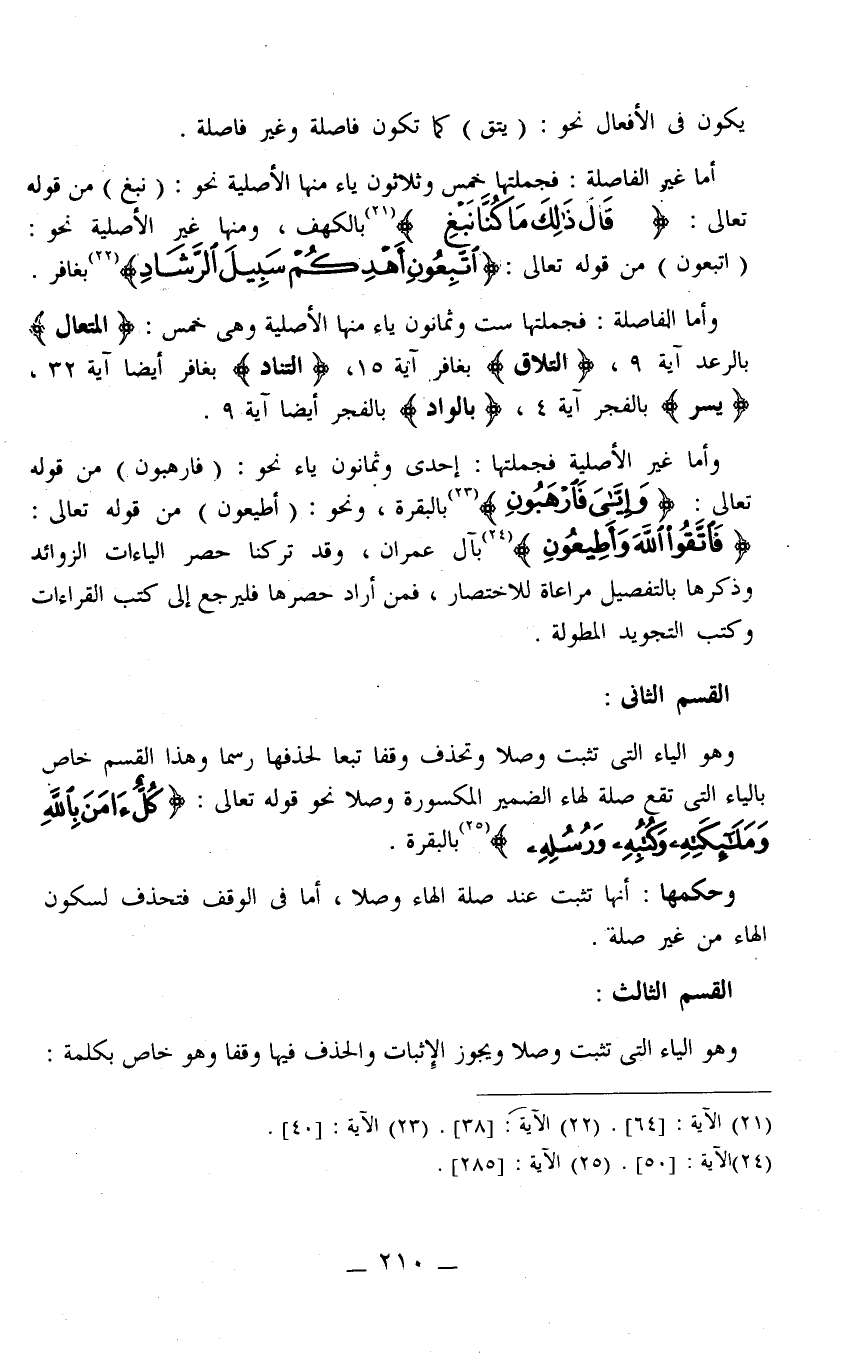 يكون فى الأفعال نحو : ( يتق ) كما تكون فاصلة وغير فاصلة .
أما غير الفاصلة : فجملتها خمس وثلاثون ياء منها الأصلية نحو : ( نبغ ) من قوله
تعالى : ﴿ قَالَ ذَٰلِكَ مَا كُنَّا نَبْغِ ﴾(٢١) بالكهف ، ومنها غير الأصلية نحو :
( اتبعون ) من قوله تعالى : ﴿ ٱتَّبِعُونِ أَهْدِكُمْ سَبِيلَ ٱلرَّشَادِ ﴾(٢٢) بغافر .
وأما الفاصلة : فجملتها ست وثمانون ياء منها الأصلية وهى خمس : ﴿ المتعال ﴾
بالرعد آية ٩ ، ﴿ التلاق ﴾ بغافر آية ١٥، ﴿ التناد ﴾ بغافر أيضا آية ٣٢ ،
﴿ يسر ﴾ بالفجر آية ٤ ، ﴿ بالواد ﴾ بالفجر أيضا آية ٩ .
وأما غير الأصلية فجملتها : إحدى وثمانون ياء نحو : ( فارهبون ) من قوله
تعالى : ﴿ وَإِيَّٰىَ فَٱرْهَبُونِ ﴾(٢٣) بالبقرة ، ونحو : ( أطيعون ) من قوله تعالى :
﴿ فَٱتَّقُوا۟ ٱللَّهَ وَأَطِيعُونِ ﴾(٢٤) بآل عمران ، وقد تركنا حصر الياءات الزوائد
وذكرها بالتفصيل مراعاة للاختصار ، فمن أراد حصرها فليرجع إلى كتب القراءات
وكتب التجويد المطولة .
القسم الثانى :
وهو الياء التى تثبت وصلا وتحذف وقفا تبعا لحذفها رسما وهذا القسم خاص
بالياء التى تقع صلة لهاء الضمير المكسورة وصلا نحو قوله تعالى : ﴿ كُلٌّ ءَامَنَ بِٱللَّهِ
وَمَلَٰٓئِكَتِهِۦ وَكُتُبِهِۦ وَرُسُلِهِۦ ﴾(٢٥) بالبقرة .
وحكمها : أنها تثبت عند صلة الهاء وصلا ، أما فى الوقف فتحذف لسكون
الهاء من غير صلة .
القسم الثالث :
وهو الياء التى تثبت وصلا ويجوز الإثبات والحذف فيها وقفا وهو خاص بكلمة :
(٢١) الآية : [٦٤] . (٢٢) الآية : [٣٨] . (٢٣) الآية : [٤٠] .
(٢٤)الآية : [٥٠] . (٢٥) الآية : [٢٨٥] .
— ٢١٠ —